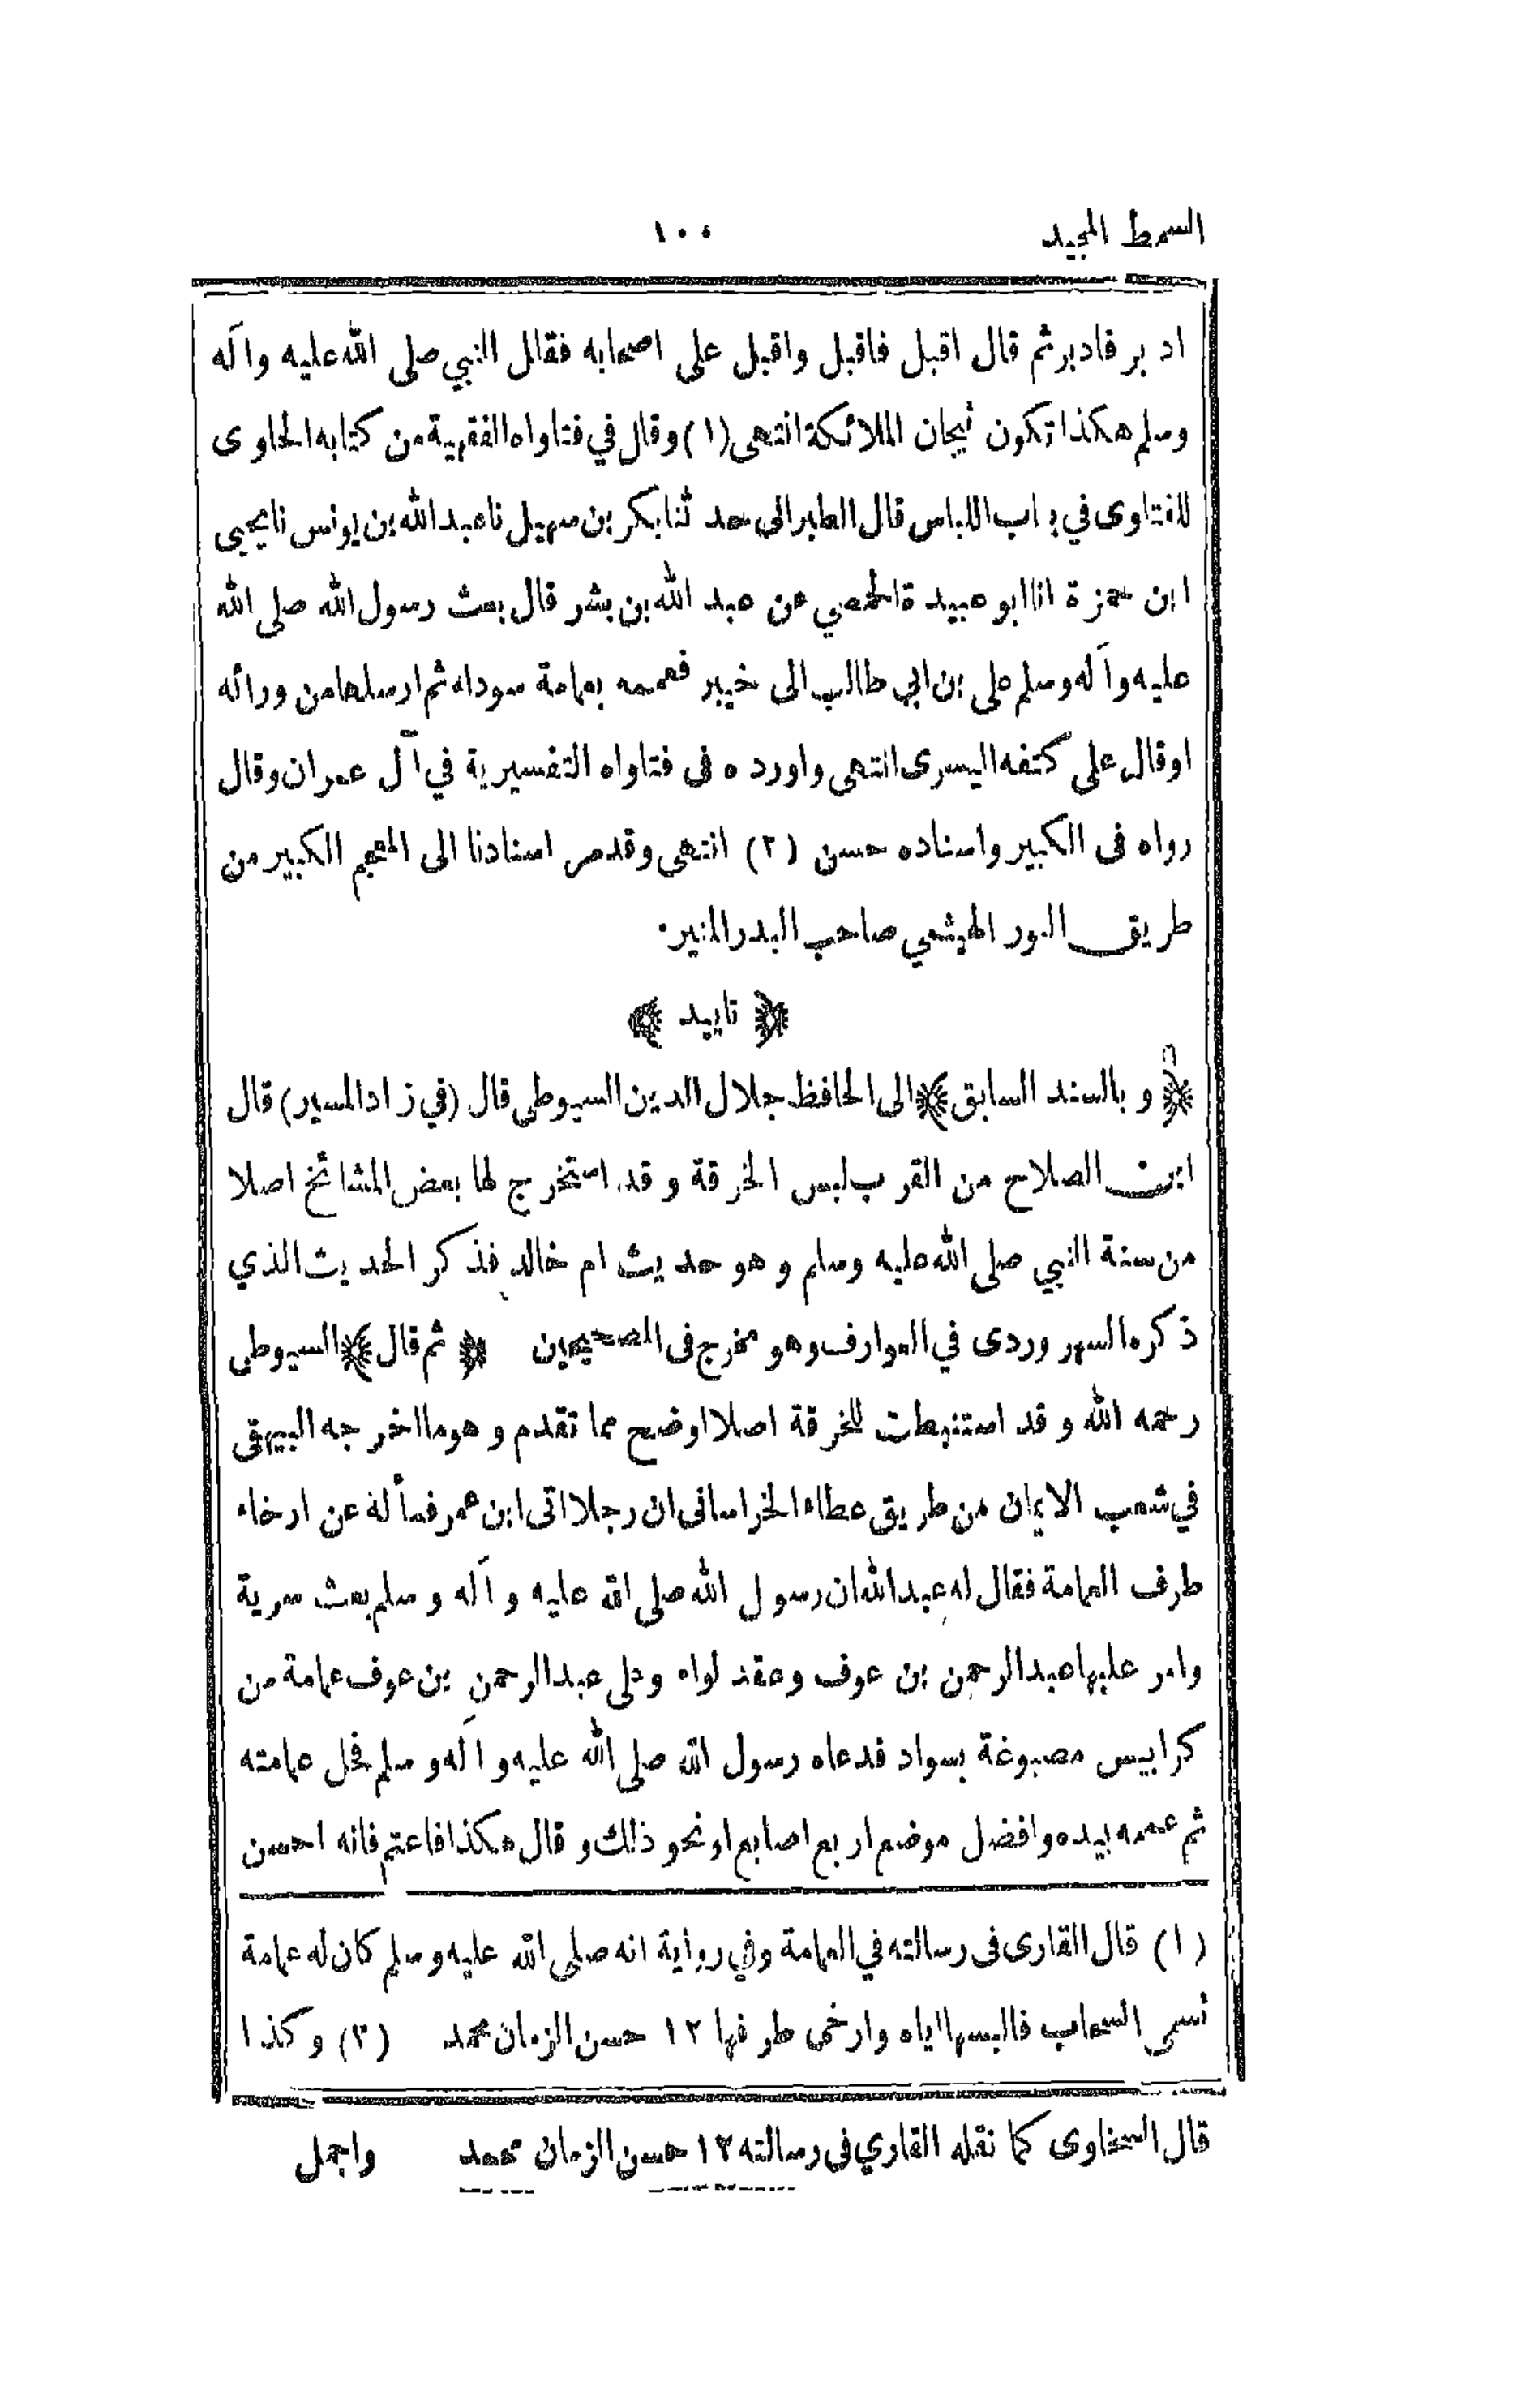 السمط المجيد ١٠٠
ادبر فادبر ثم قال اقبل فاقبل واقبل على اصحابه فقال النبي صلى الله عليه وآله
وسلم هكذا تكون تيجان الملائكة انتهى (١) وقال في فتاواه الفقهية من كتابه الحاوى
للفتاوى في باب اللباس قال الطبرانى حدثنا بكر بن سهيل نا عبد الله بن يونس نا يحيى
ابن حمزة انا ابو عبيدة الحمصي عن عبد الله بن بشر قال بعث رسول الله صلى الله
عليه وآله وسلم على بن ابي طالب الى خيبر فعممه بعمامة سوداء ثم ارسلها من ورائه
او قال على كتفه اليسرى انتهى واورده فى فتاواه التفسيرية في آل عمران وقال
رواه فى الكبير واسناده حسن (٢) انتهى وقد مر اسنادنا الى المعجم الكبير من
طريق النور الهيثمي صاحب البدر المنير٠
﴿ تاييد ﴾
﴿ و بالسند السابق ﴾ الى الحافظ جلال الدين السيوطى قال (في زاد المسير) قال
ابن الصلاح من القرب لبس الخرقة وقد استخرج لها بعض المشائخ اصلا
من سنة النبي صلى الله عليه وسلم وهو حديث ام خالد فذكر الحديث الذي
ذكره السهروردى في العوارف وهو مخرج فى الصحيحين ﴿ ثم قال ﴾ السيوطى
رحمه الله وقد استنبطت للخرقة اصلا اوضح مما تقدم وهو ما اخرجه البيهقى
في شعب الايمان من طريق عطاء الخراسانى ان رجلا اتى ابن عمر فسأله عن ارخاء
طرف العمامة فقال له عبد الله ان رسول الله صلى الله عليه وآله وسلم بعث سرية
وامر عليها عبد الرحمن بن عوف وعقد لواء وعلى عبد الرحمن بن عوف عمامة من
كرابيس مصبوغة بسواد فدعاه رسول الله صلى الله عليه وآله وسلم فحل عمامته
ثم عممه بيده وافضل موضع اربع اصابع او نحو ذلك وقال هكذا فاعتم فانه احسن
(١) قال القارى فى رسالته في العمامة وفي رواية انه صلى الله عليه وسلم كان له عمامة
تسمى السحاب فالبسها اياه وارخى طرفها ١٢ حسن الزمان محمد (٢) وكذا
قال السخاوى كما نقله القاري فى رسالته ١٢ حسن الزمان محمد واجمل